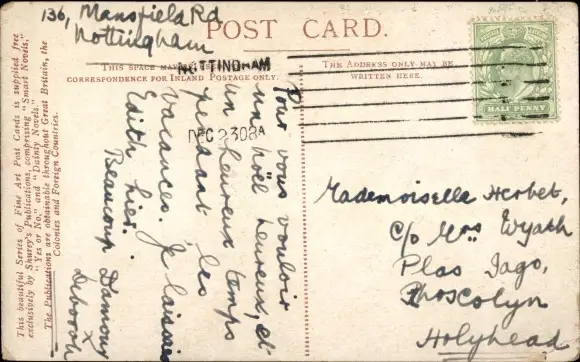 136, Mansfield Rd
Nottingham
POST CARD.
THIS SPACE MAY
CORRESPONDENCE FOR INLAND POSTAGE ONLY.
THE ADDRESS ONLY MAY BE
WRITTEN HERE.
NOTTINGHAM
DEC 23 08
HALF PENNY
This beautiful Series of Fine Art Post Cards is supplied free
exclusively by Shurey's Publications, comprising "Smart Novels,"
"Yes or No," and "Dainty Novels."
The Publications are obtainable throughout Great Britain, the
Colonies and Foreign Countries.
Pour vous vouloir
une noël heureux, et
un heureux temps
pendant les
vacances. Je laissais
Edith hier.
Beaucoup D'amour
X
Deborah
Mademoiselle Herbet,
c/o Mrs Wyatt
Plas Iago,
Rhoscolyn
Holyhead